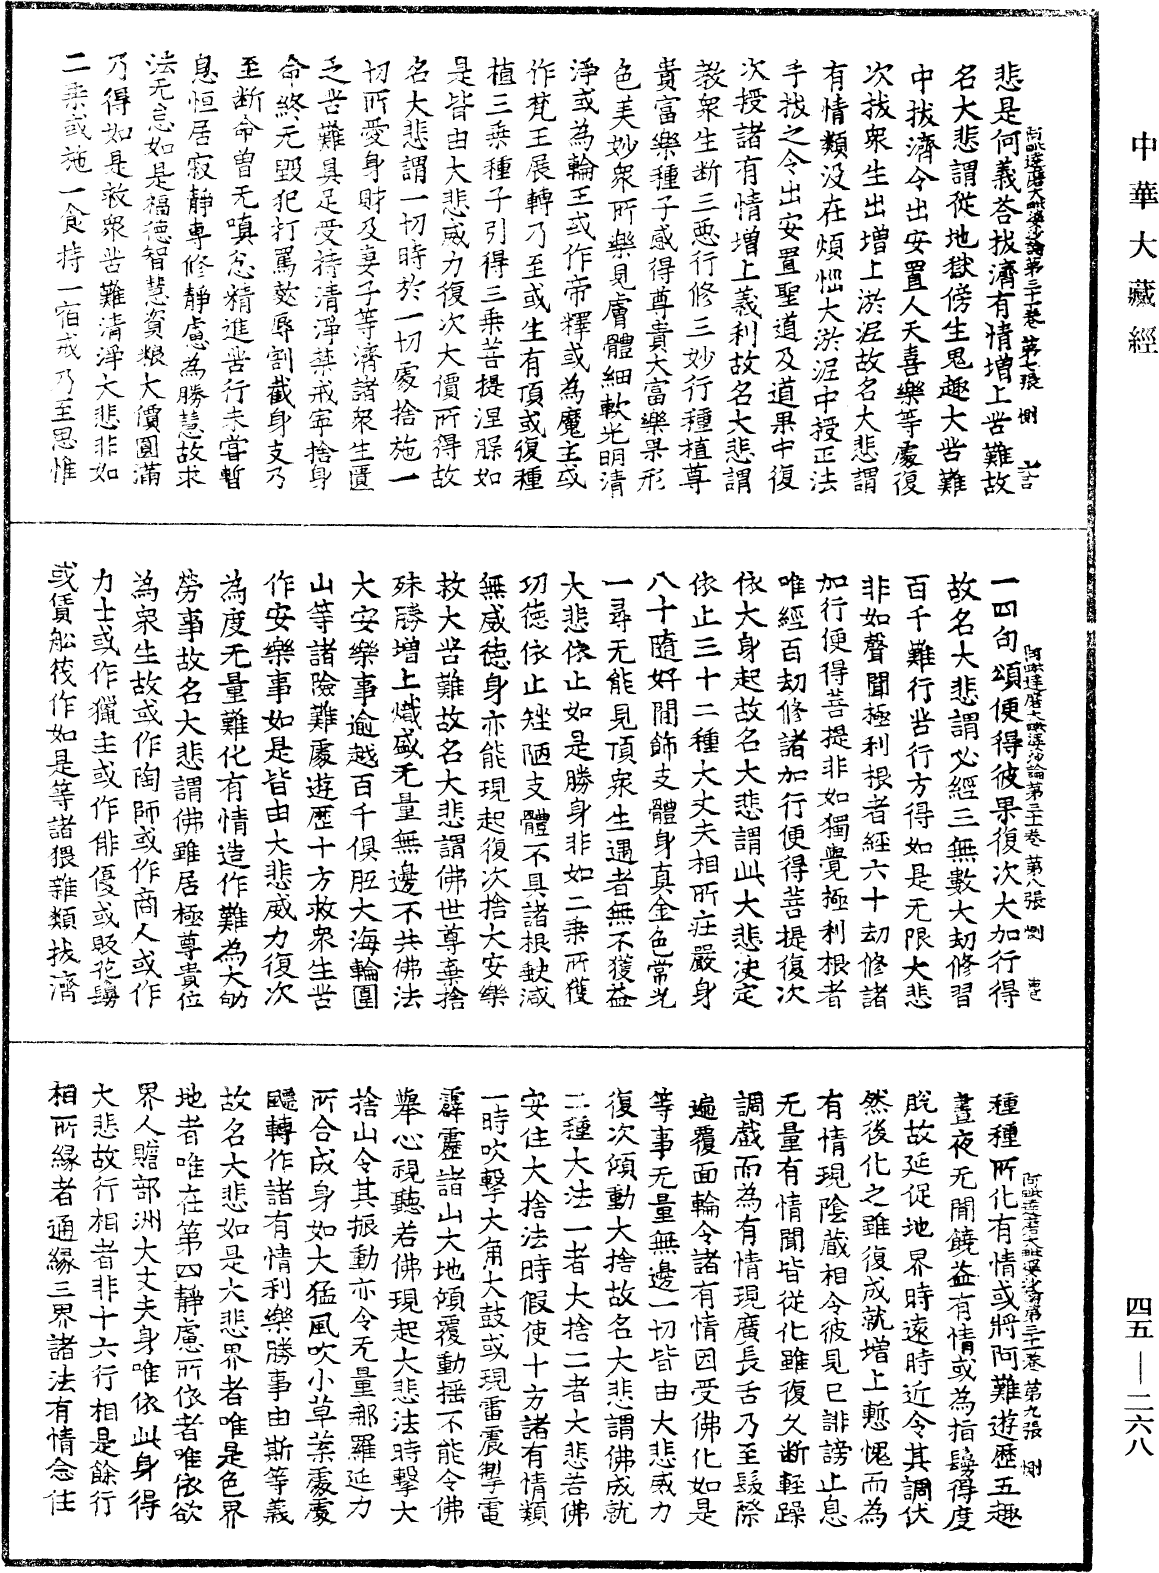 中華大藏經
四五——二六八
悲是何義荅拔濟有情增上苦難故
阿毗達磨大毗婆沙論第三十一卷 第七張 惻
名大悲謂從地獄傍生鬼趣大苦難
中拔濟令出安置人天喜樂等處復
次拔衆生出增上淤泥故名大悲謂
有情類没在煩惱大淤泥中授正法
手拔之令出安置聖道及道果中復
次授諸有情增上義利故名大悲謂
教衆生斷三惡行修三妙行種植尊
貴富樂種子感得尊貴大富樂果形
色美妙衆所樂見膚體細軟光明清
淨或為輪王或作帝釋或為魔主或
作梵王展轉乃至或生有頂或復種
植三乗種子引得三乗菩提涅脲如
是皆由大悲威力復次大價所得故
名大悲謂一切時於一切處捨施一
切所愛身財及妻子等濟諸衆生匱
乏苦難具足受持清淨禁戒寧捨身
命終无毀犯打罵欬辱割截身支乃
至斷命曽无嗔忿精進苦行未甞暫
息恒居寂靜專修靜慮為勝慧故求
法无怠如是福德智慧資粮大價圓滿
乃得如是救衆苦難清淨大悲非如
二乗或施一食持一宿戒乃至思惟
一四句頌便得彼果復次大加行得
阿毗達磨大毗婆沙論第三十一卷 第八張 惻
故名大悲謂必經三無數大劫修習
百千難行苦行方得如是无限大悲
非如聲聞極利根者經六十劫修諸
加行便得菩提非如獨覺極利根者
唯經百劫修諸加行便得菩提復次
依大身起故名大悲謂此大悲決定
依止三十二種大丈夫相所莊嚴身
八十隨好間飾支體身真金色常光
一尋无能見頂衆生遇者無不獲益
大悲依止如是勝身非如二乗所獲
功德依止矬陋支體不具諸根缺减
無威德身亦能現起復次捨大安樂
救大苦難故名大悲謂佛世尊棄捨
殊勝增上熾盛无量無邊不共佛法
大安樂事逾越百千俱胝大海輪圍
山等諸險難處遊歷十方救衆生苦
作安樂事如是皆由大悲威力復次
為度无量難化有情造作難為大劬
勞事故名大悲謂佛雖居極尊貴位
為衆生故或作陶師或作商人或作
力士或作獵主或作俳優或販花鬘
或賃舩筏作如是等諸猥雜類拔濟
種種所化有情或將阿難遊歷五趣
阿毗達磨大毗婆沙論第三十一卷 第九張 惻
晝夜无間饒益有情或為指鬘得度
脫故延促地界時遠時近令其調伏
然後化之雖復成就增上慙愧而為
有情現陰蔵相令彼見已誹謗止息
无量有情聞皆從化雖復久斷輕躁
調戲而為有情現廣長舌乃至髮際
遍覆面輪令諸有情因受佛化如是
等事无量無邊一切皆由大悲威力
復次傾動大捨故名大悲謂佛成就
二種大法一者大捨二者大悲若佛
安住大捨法時假使十方諸有情類
一時吹擊大角大鼓或現雷震掣電
霹靂諸山大地傾覆動摇不能令佛
舉心視聽若佛現起大悲法時擊大
捨山令其振動亦令无量那羅延力
所合成身如大猛風吹小草葉處處
飄轉作諸有情利樂勝事由斯等義
故名大悲如是大悲界者唯是色界
地者唯在第四靜慮所依者唯依欲
界人贍部洲大丈夫身唯依此身得
大悲故行相者非十六行相是餘行
相所緣者通緣三界諸法有情念住